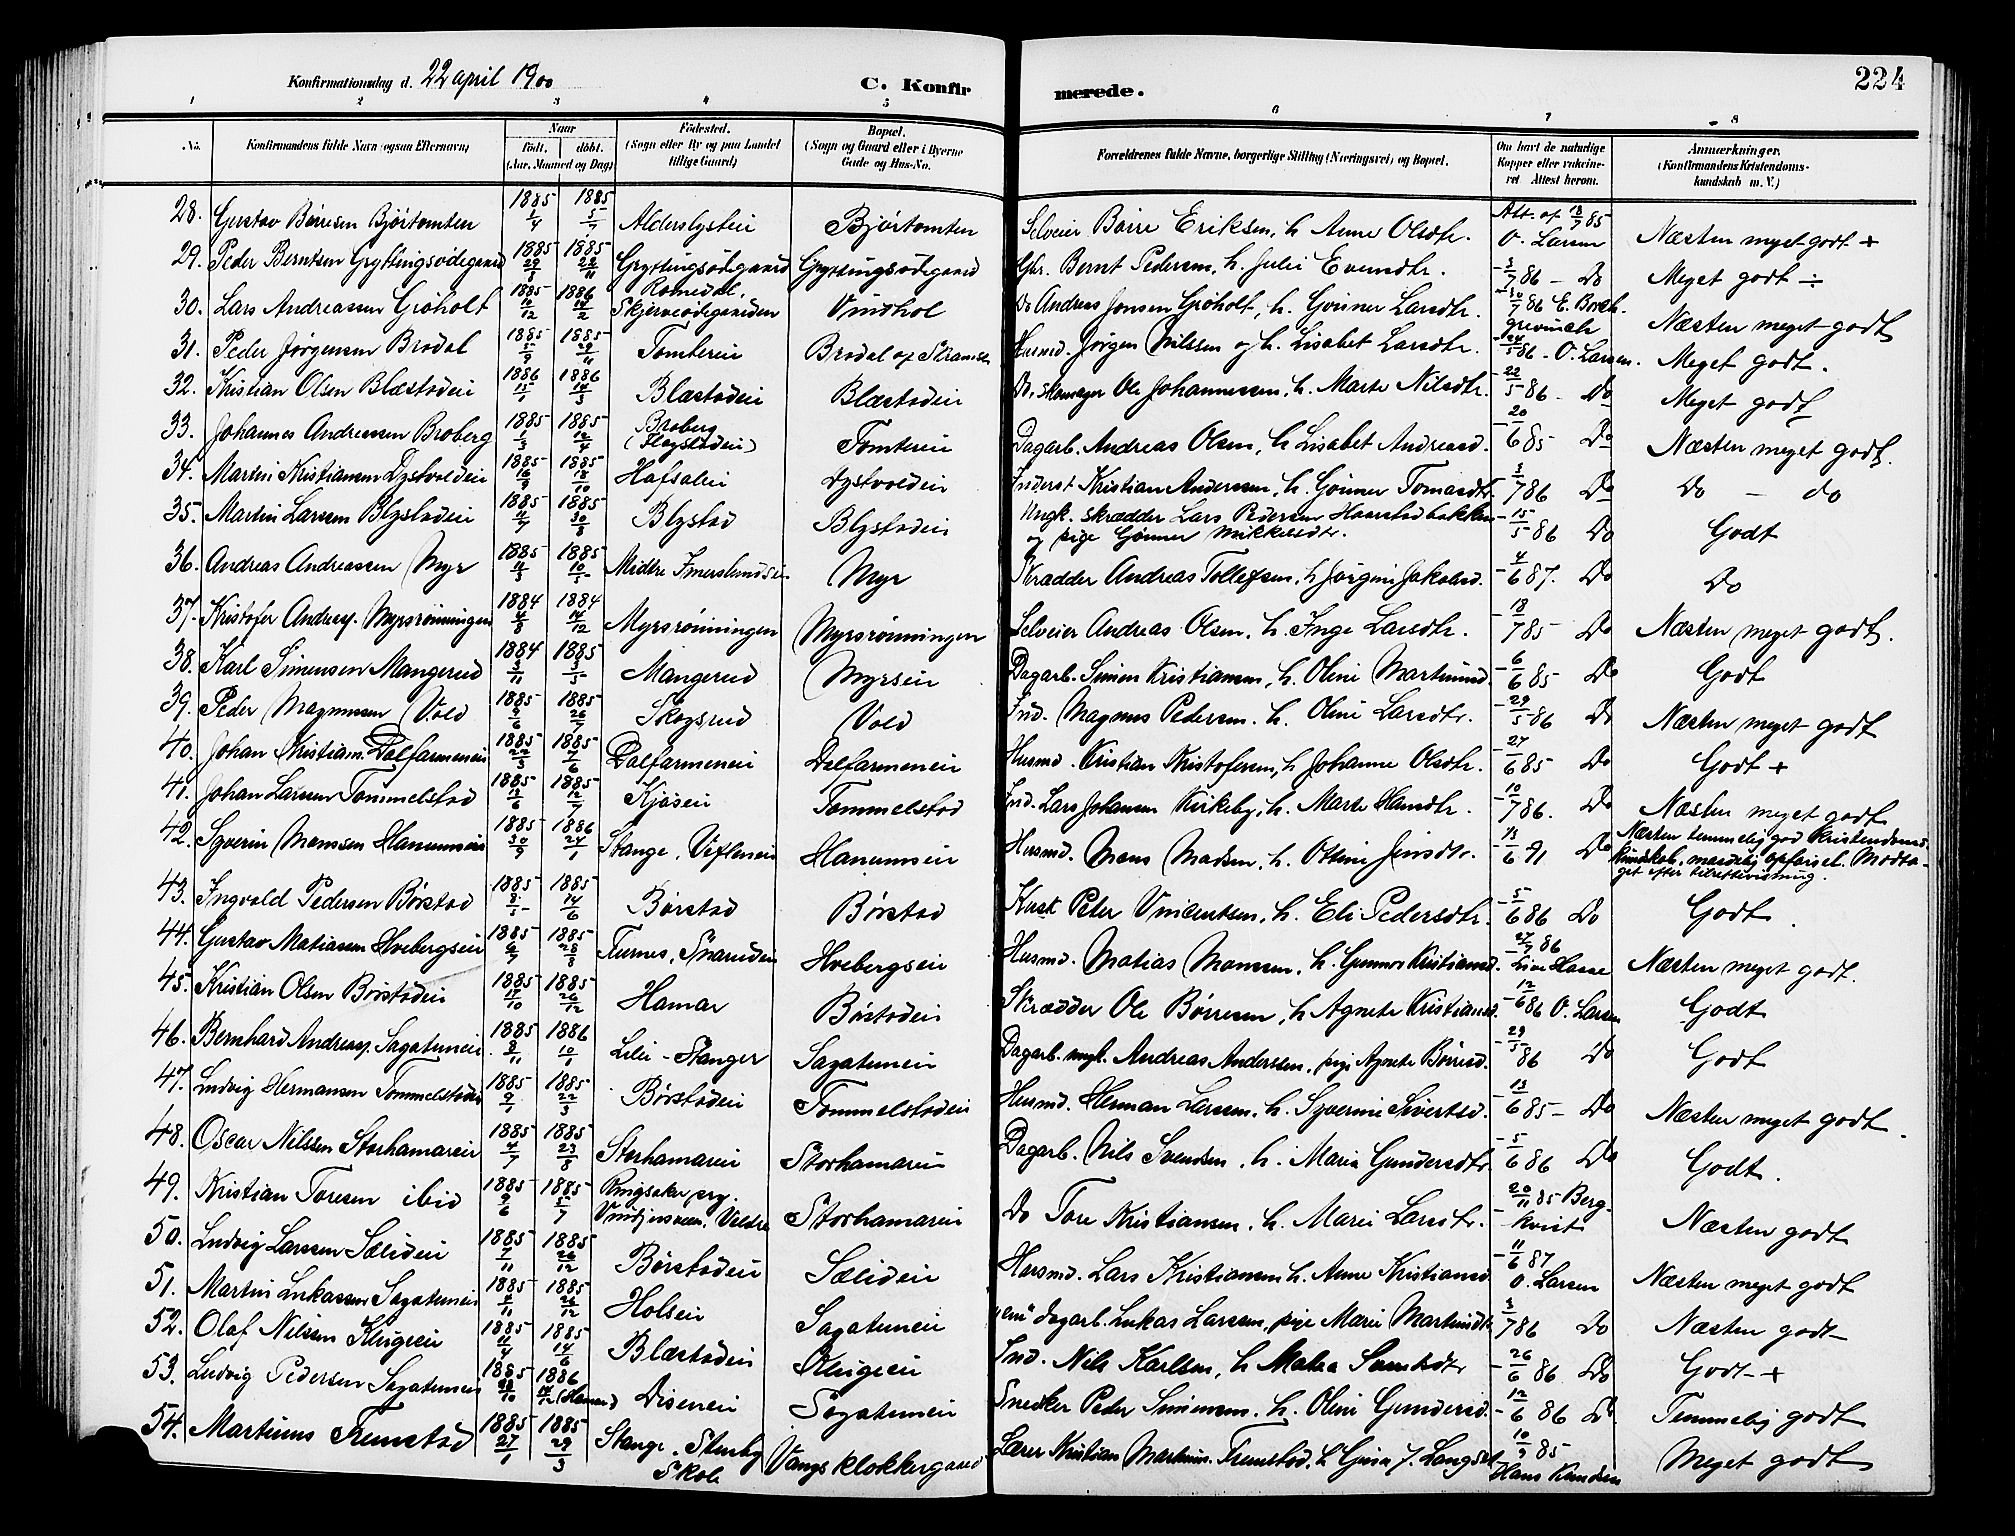 Konfirmationsdag d. 22 april 1900 C. Konfirmerede. 224
1 2 3 4 5 6 7 8
No. Konfirmandens fulde Navn (ogsaa Efternavn) Naar født. døbt. (Aar, Maaned og Dag) Fødested. (Sogn eller By og paa Landet tillige Gaard) Bopæl. (Sogn og Gaard eller i Byerne Gade og Hus-No. Forældrenes fulde Navne, borgerlige Stilling (Næringsvei) og Bopæl. Om havt de naturlige Kopper eller vakcineret Attest herom. Anmærkninger. (Konfirmandens Kristendomskundskab m. V.)
28. Gustav Børresen Bjørtomten 1885 1885 5/7 Alderslysteie Bjørtomten Selveier Børre Eriksen, h. Anne Olsdtr. Att. af 18/7 85 O. Larsen Næsten meget godt +
29. Peder Berntsen Gryttingsødegaard 1885 1885 22/11 Gryttingsødegaard Gryttingsødegaard Gbr. Bernt Pedersen, h. Julie Evensdtr. - 3/7 86 - Do Meget godt ÷
30. Lars Andreassen Grøholt 1885 10/12 1886 14/2 Romedal, Skjerveødegaarden Vindhol Do Andreas Jonsen Grøholt, h. Gønner Larsdtr. - 30/7 86 E. Borchgrevinck Næsten meget godt
31. Peder Jørgensen Brodal 1885 5/9 1885 29/11 Tomterei Brodal af Skramst. Husmd. Jørgen Nilssen og h. Lisabet Larsdtr. - 24/5 86 - O. Larsen. Meget godt.
32. Kristian Olsen Blæstadeie 1886 15/1 1886 14/3 Blæstadeie Blæstadeie Do, skomager Ole Johannessen, h. Marte Nilsdtr. - 22/5 86 - Do Meget godt
33. Johannes Andreassen Broberg 1885 1/3 1885 12/4 Broberg (Flagstadeie) Tomterei Dagarb. Andreas Olsen, h. Lisabet Andreasd. - 20/6 85 - Do Næsten meget godt.
34. Martin Kristiansen Dystvoldeie 1885 16/9 1885 18/10 Hafsaleie Dystvoldeie Inderst Kristian Anderssen, h. Gønner Tomasdtr. - 3/7 86 Do Do - do
35. Martin Larssen Blystadeie 1885 11/7 1885 30/8 Blystad Blystadeie Ungk. skrædder Lars Pedersen Haarstadbakken og pige Gønner Mikkelsdtr. - 15/5 86 Do Godt
36. Andreas Andreassen Myr 1885 11/3 1885 10/5 Midtre Imerslundseie Myr Skrædder Andreas Tollefsen, h. Jørgine Jakobsd. - 4/6 87. Do Do
37. Kristofer Andreas. Myrsrønningen 1884 4/8 1884 14/12 Myrsrønningen Myrsrønningen Selveier Andreas Olsen, h. Inge Larsdtr. - 18/7 85 Do Næsten meget godt.
38. Karl Simensen Mangerud 1884 3/11 1885 3/5 Mangerud Myrseie Dagarb. Simen Kristiansen, h. Oline Martinusd. - 6/6 85 Do Godt
39. Peder Magnussen Vold 1885 9/6 1885 26/7 Skogsrud Vold Ind. Magnus Pedersen. h. Oline Larsdtr. - 29/5 86 Do Næsten meget godt
40. Johan Kristians. Dalfarmeneie 1885 22/3 1885 7/6 Dalfarmeneie Dalfarmeneie Husmd. Kristian Kristofersen, h. Johanne Olsdtr. - 27/6 85 Do Godt +
41. Johan Larssen Tommelstad 1885 12/6 1885 12/7 Kjøseie Tommelstad Ind. Lars Johansen Kirkeby, h. Marte Hansdtr. - 10/7 86. Do Næsten meget godt
42. Syverin Monssen Hanumseie 1885 30/9 1886 24/1 Stange, Vefleneie Hanumseie Husmd. Mons Madsen, h. Ottine Jensdtr. - 13/6 91 Do Næsten temmelig god Kristendomskundskab, maadelig opførsel. Modtaget efter tilrettevisning.
43. Ingvald Pedersen Børstad 1885 8/5 1885 14/6 Børstad Børstad Kusk Peter Vincentsen, h. Eli Pedersdtr. - 5/6 86 Do Godt.
44. Gustav Matiassen Hvebergseie 1885 6/7 1885 23/8 Furnes, Hvebergseie Husmd. Matias Monssen, h. Gunnor Kristiansd. - 27/7 86 Live Hasse Næsten meget godt.
45. Kristian Olsen Børstadeie 1885 17/10 1885 26/12 Hamar Børstadeie Skrædder Ole Børresen, h. Agnete Kristiansd. - 12/6 86 O. Larsen Godt
46. Bernhard Andreas. Sagatuneie 1885 8/11 1886 10/1 Lille-Stanger Sagatuneie Dagarb. ungk. Andreas Anderssen, pige Agnete Børresd. - 29/5 86 Do Godt
47. Ludvig Hermansen Tommelstadeie 1885 9/1 1885 22/3 Børstadeie Tommelstadeie Husmd. Herman Larssen, h. Syverine Sivertsd. - 13/6 85 - Do Næsten meget godt.
48. Oscar Nilssen Storhamareie 1885 4/7 1885 23/8 Storhamareie Storhamareie Dagarb. Nils Svendsen, h. Maria Gundersdtr. - 5/6 86 Do Godt.
49. Kristian Toresen ibid 1885 9/6 1885 5/7 Ringsaker prg. Veldre Storhamareie Do Tore Kristiansen, h. Marie Larsdtr. - 20/11 85 Bergkvist Næsten godt
50. Ludvig Larssen Sælideie 1885 7/11 1885 26/12 Børstadeie Sælideie Husmd. Lars Kristiansen h. Anne Kristiansd. - 11/6 87 O. Larsen Næsten meget godt
51. Martin Lukassen Sagatuneie 1885 1885 26/12 Holseie Sagatuneie dagarb. Lukas Larssen, pige Marie Martinsdtr. 3/7 86 Do Næsten godt
52. Olaf Nilsen Klugeeie 1885 11/4 1885 14/6 Blæstadeie Klugeeie Ind. Nils Karlsen, h. - 26/6 86 Do Godt - +
53. Ludvig Pedersen Sagatuneie 1885 1886 (Hamar) Diseneie Sagatuneie Snedker Peder Simensen, h. Oline Gundersd. - 12/6 86 Do Temmelig godt
54. Martinus Frenstad 1885 27/1 1885 29/3 Stange, Stenby Skole Vangs klokkergaard Lærer Kristian Martinus. Frenstad, h. 10/9 85 Hans Knudsen Meget godt